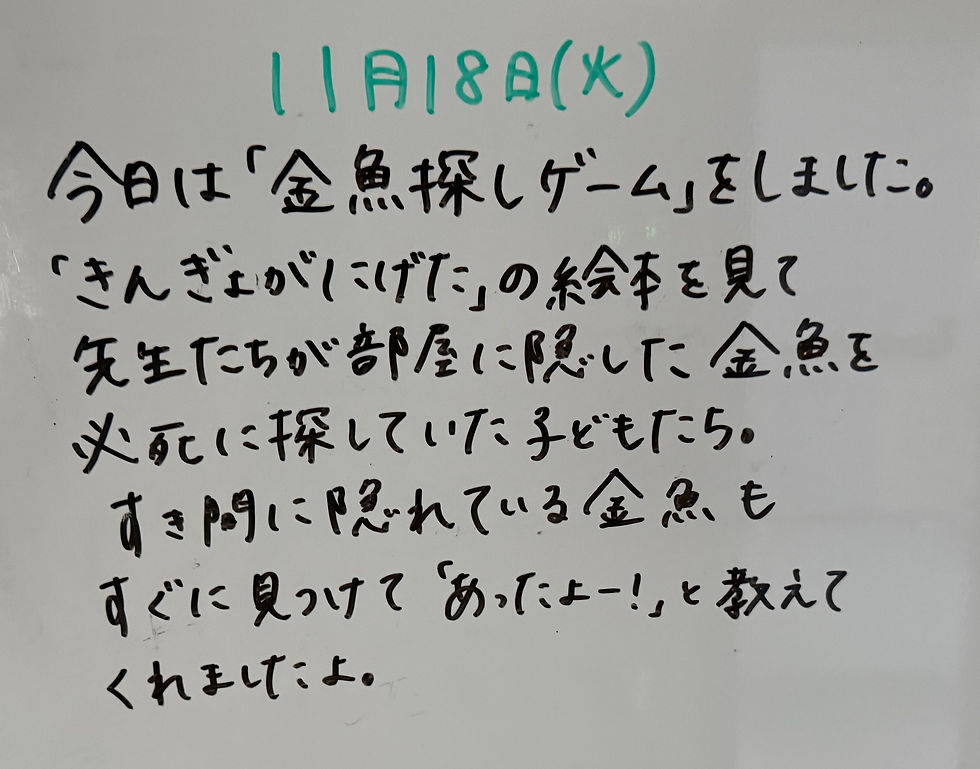 11月18日(火)
今日は「金魚探しゲーム」をしました。
「きんぎょがにげた」の絵本を見て
先生たちが部屋に隠した金魚を
必死に探していた子どもたち。
すき間に隠れている金魚も
すぐに見つけて「あったよー!」と教えて
くれましたよ。